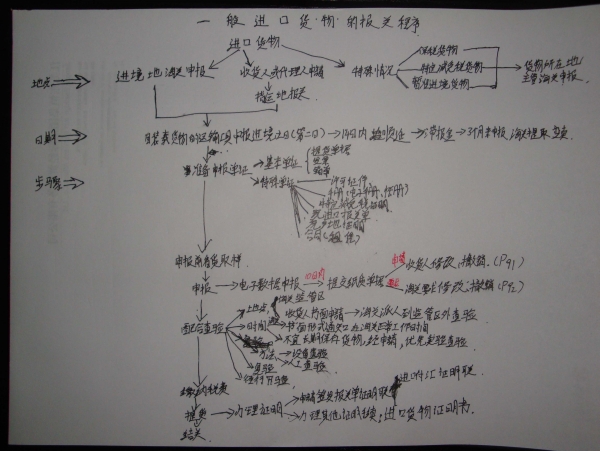 一般进口货物的报关程序
进口货物
地点 进境地海关申报 收货人或代理人申请 特殊情况 保税货物
指运地报关 特定减免税货物 货物所在地
暂准进境货物 主管海关申报
日期 日 装载货物的运输工具申报进境之日(第二日) 14日内 滞报金 3个月未申报 海关提取变卖
步骤 准备申报单证 基本单证
特殊单证 许可证件
特定减免税证明
原进口报关单
原产地证明
申报前看货取样
申报 电子数据申报 10日内 提交纸质单据 申请 收货人修改、撤销.(P91)
海关要求修改、撤销(P92)
配合查验 地点 海关监管区
收货人书面申请 海关派人到监管区外查验
时间 书面形式通知 海关正常工作时间
不宜长期保存货物,经申请,优先安排查验
方法 设备查验
复验 人工查验
径行开验
缴纳税费
提货 办理证明 申请签发报关单证明联 进口付汇证明联
办理其他证明手续:进口货物证明书.
结关